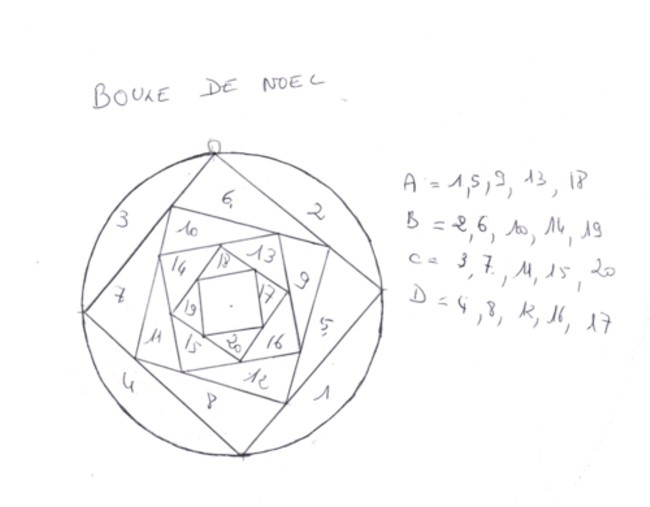 BOULE DE NOEL
A = 1,5,9, 13, 18
B = 2,6, 10, 14, 19
C = 3,7, 11, 15, 20
D = 4,8, 12, 16, 17
6
2
3
10
13
9
18
14
17
7
19
5
11
15
20
16
12
4
8
1